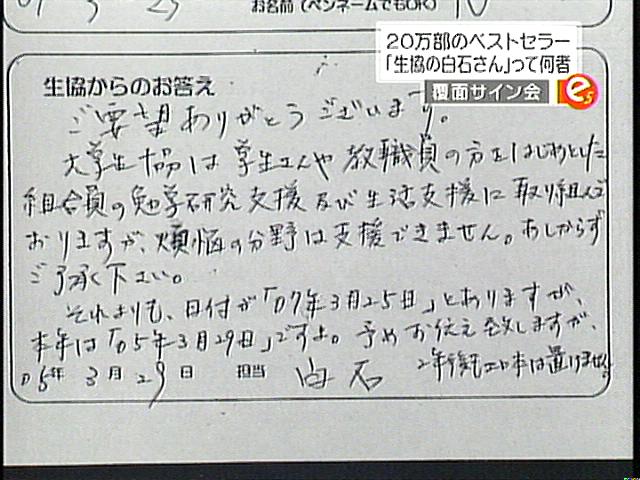 お名前(ペンネームでもOK)
20万部のベストセラー
「生協の白石さん」って何者
覆面サイン会
e5
生協からのお答え
ご要望ありがとうございます。
大学生協は学生さんや教職員の方をはじめとした
組合員の勉学研究支援及び生活支援に取り組んで
おりますが、煩悩の分野は支援できません。あしからず
ご了承下さい。
それよりも、日付が「07年3月25日」とありますが、
本年は「05年3月29日」ですよ。予めお伝え致しますが、
2年後もエロ本は置けません。
05年 3月 29日 担当 白石